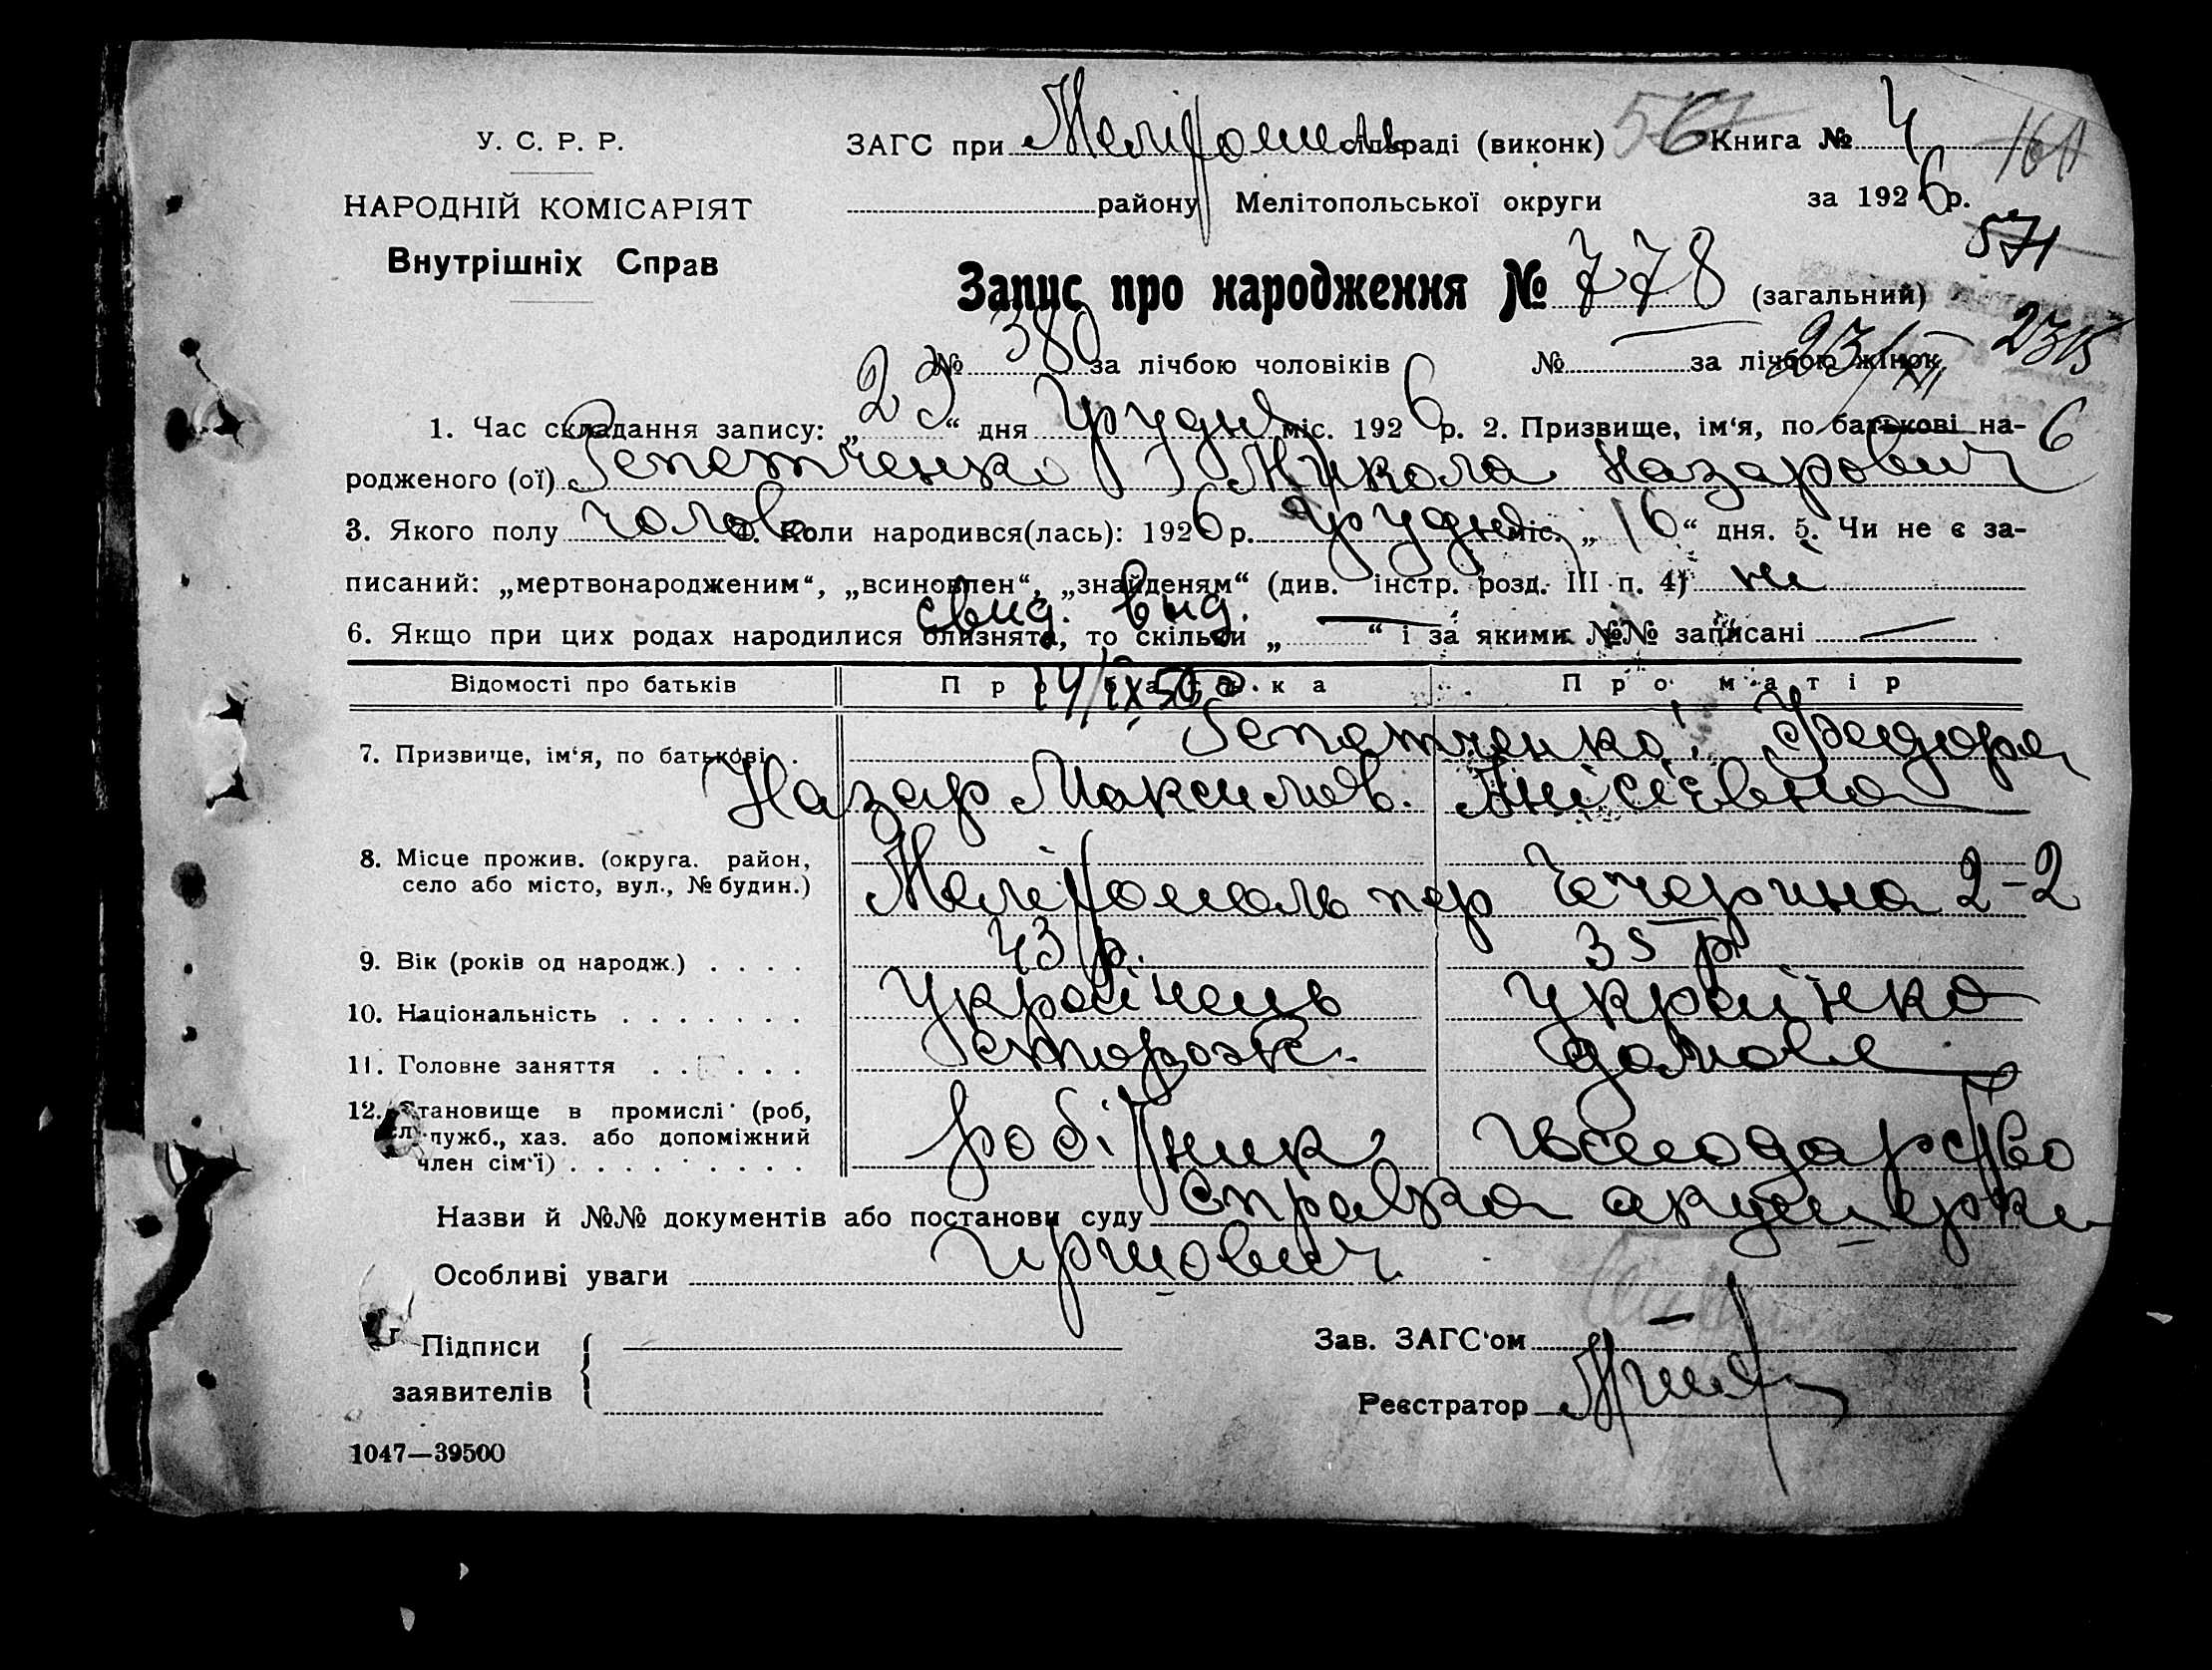 У. С. Р. Р.
НАРОДНІЙ КОМІСАРІЯТ
Внутрішніх Справ
ЗАГС при Мелітопольс сільраді (виконк) 567 Книга № 4 161
району Мелітопольської округи за 1926 р.
571
Запис про народження № 778 (загальний)
№ 380 за лічбою чоловіків № за лічбою жінок 23/XII
1. Час складання запису: „23“ дня грудня міс. 1926 р. 2. Призвище, ім‘я, по батькові на- 6
родженого (ої) Репетченко Микола Назарович
3. Якого полу чолов 4. Коли народився(лась): 1926 р. грудня міс. „16“ дня. 5. Чи не є за-
писаний: „мертвонародженим“, „всиновлен“, „знайденям“ (див. інстр. розд. III п. 4) ні
свид. выд.
6. Якщо при цих родах народилися близнята, то скільки „ — “ і за якими №№ записані —
14/IX 50
Відомості про батьків Про батька Про матір
7. Призвище, ім‘я, по батькові . Репетченко Федора
Назар Максимов. Анісієвна
8. Місце прожив. (округа. район,
село або місто, вул., № будин.) Мелітополь пер Чечерина 2-2
9. Вік (років од народж.) . . . . 43 р. 35 р
10. Національність . . . . . . . Українець українка
11. Головне заняття . . . . . Сторож домове
12. Становище в промислі (роб,
служб., хаз. або допоміжний
член сім‘ї) . . . . . . . . . робітник господарство
Назви й №№ документів або постанови суду Справка акушерки
Особливі уваги Гіршович
Підписи
заявителів
Зав. ЗАГС‘ом
Реєстратор
1047—39500